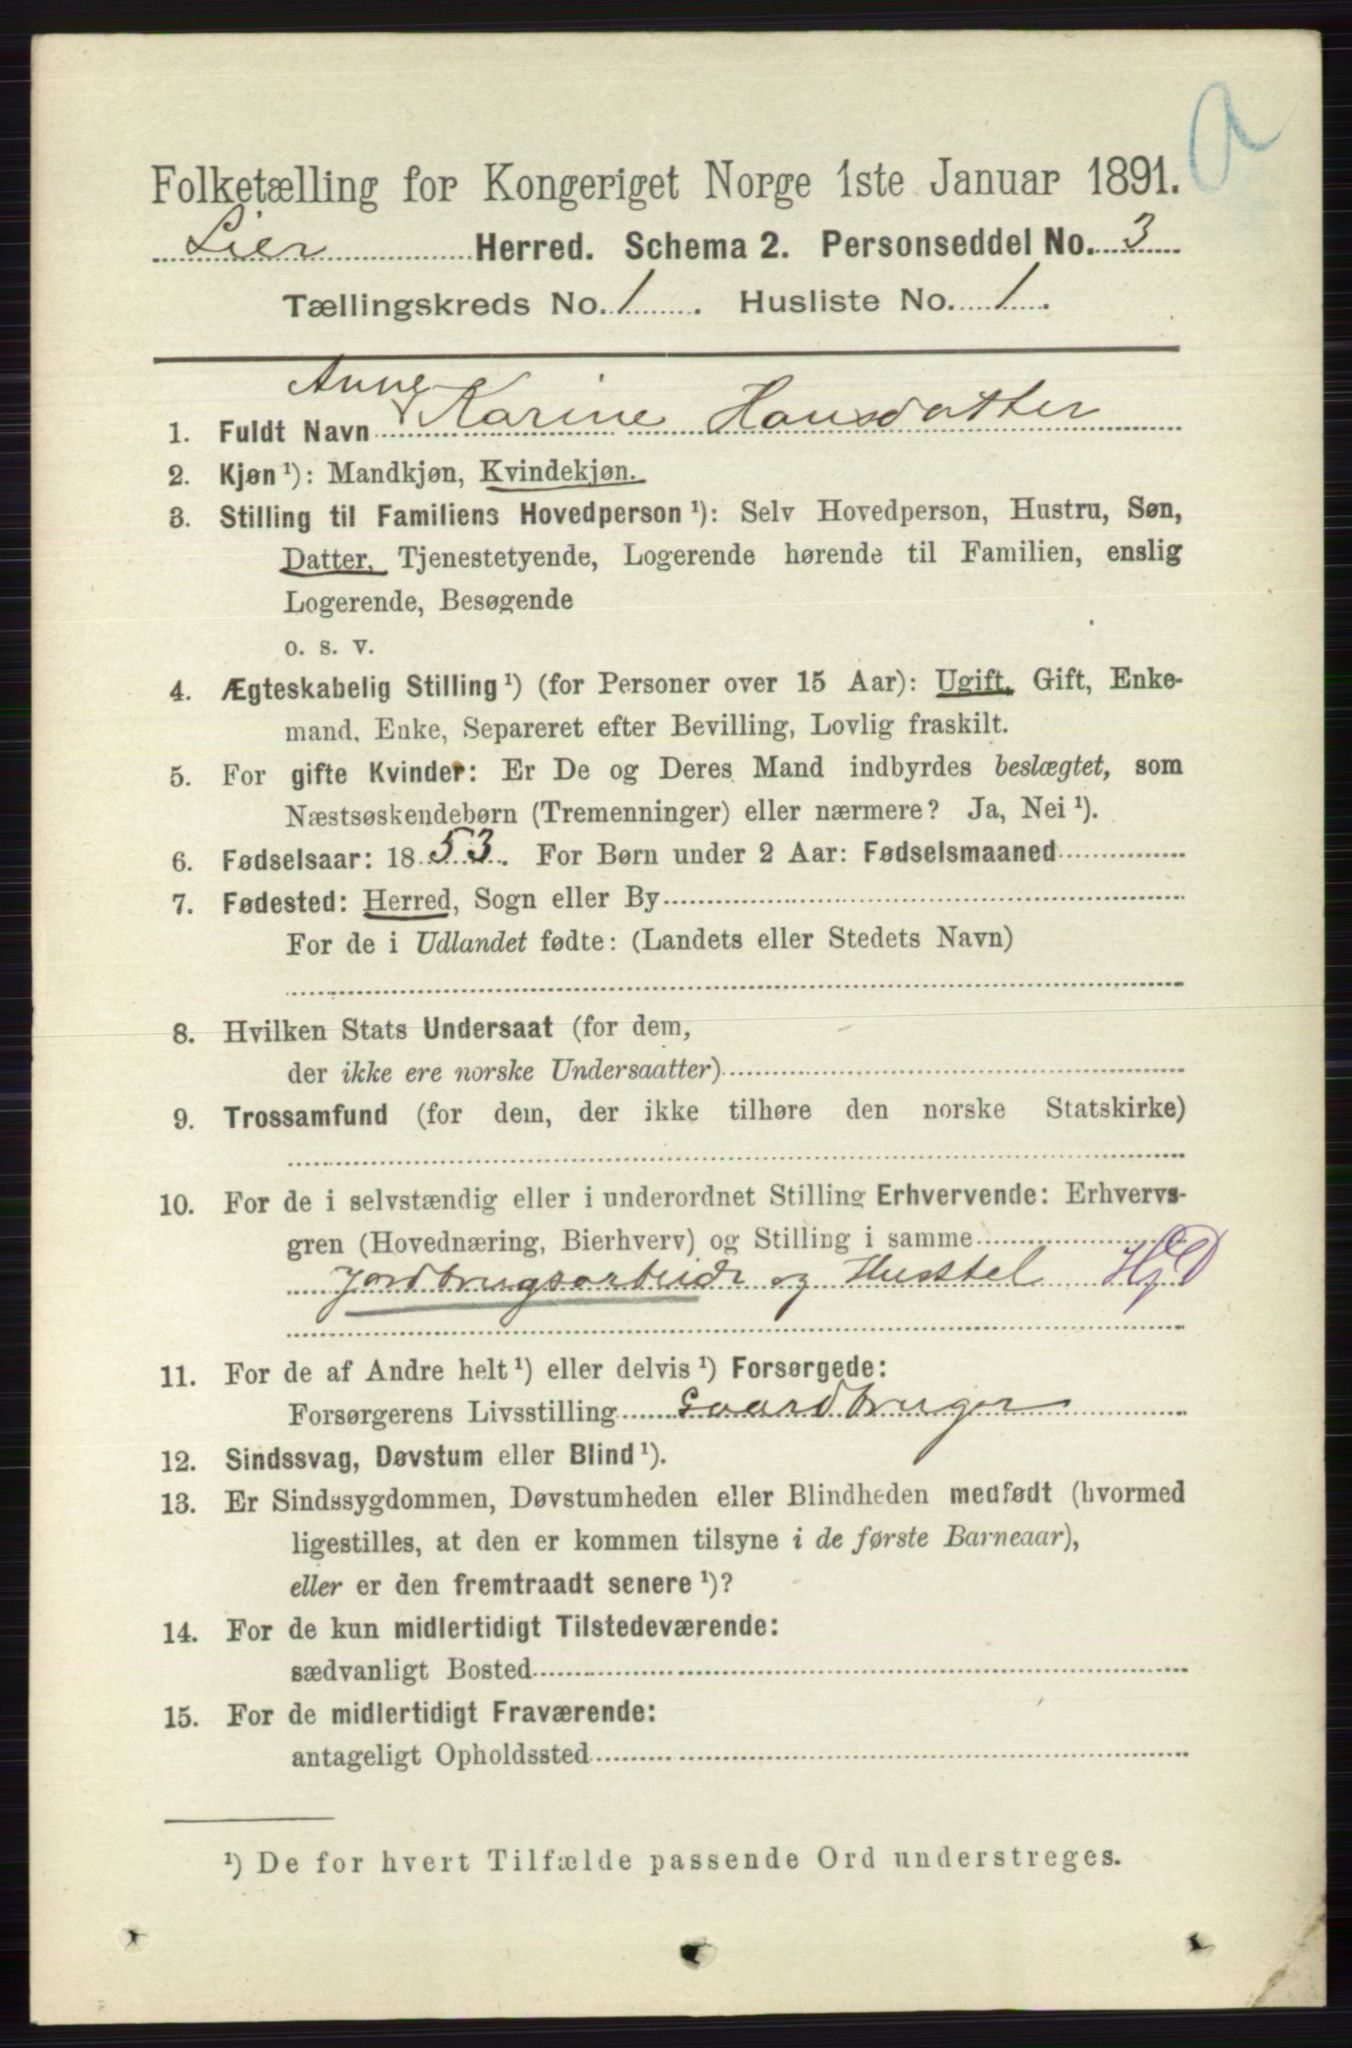 Folketælling for Kongeriget Norge 1ste Januar 1891.
Lier Herred. Schema 2. Personseddel No. 3
Tællingskreds No. 1. Husliste No. 1.
Anne
1. Fuldt Navn Karine Hansdatter
2. Kjøn ¹): Mandkjøn, Kvindekjøn.
3. Stilling til Familiens Hovedperson ¹): Selv Hovedperson, Hustru, Søn,
Datter, Tjenestetyende, Logerende hørende til Familien, enslig
Logerende, Besøgende
o. s. v.
4. Ægteskabelig Stilling ¹) (for Personer over 15 Aar): Ugift, Gift, Enke-
mand, Enke, Separeret efter Bevilling, Lovlig fraskilt.
5. For gifte Kvinder: Er De og Deres Mand indbyrdes beslægtet, som
Næstsøskendebørn (Tremenninger) eller nærmere? Ja, Nei ¹).
6. Fødselsaar: 1853. For Børn under 2 Aar: Fødselsmaaned
7. Fødested: Herred, Sogn eller By
For de i Udlandet fødte: (Landets eller Stedets Navn)
8. Hvilken Stats Undersaat (for dem,
der ikke ere norske Undersaatter)
9. Trossamfund (for dem, der ikke tilhøre den norske Statskirke)
10. For de i selvstændig eller i underordnet Stilling Erhvervende: Erhvervs-
gren (Hovednæring, Bierhverv) og Stilling i samme
Jordbrugsarbeide og Husstel HjD
11. For de af Andre helt ¹) eller delvis ¹) Forsørgede:
Forsørgerens Livsstilling Gaardbruger
12. Sindssvag, Døvstum eller Blind ¹).
13. Er Sindssygdommen, Døvstumheden eller Blindheden medfødt (hvormed
ligestilles, at den er kommen tilsyne i de første Barneaar),
eller er den fremtraadt senere ¹)?
14. For de kun midlertidigt Tilstedeværende:
sædvanligt Bosted
15. For de midlertidigt Fraværende:
antageligt Opholdssted
¹) De for hvert Tilfælde passende Ord understreges.